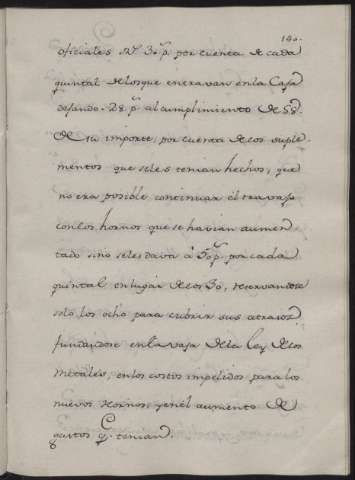 140.
oficiales R.s 30 p.s por cuenta de cada
quintal de los que entravan en la Casa
dejando 28 p.s al cumplimiento de 58
de su importe, por cuenta de los suple
mentos que seles tenian hechos, que
no era posible continuar el travajo
con los hornos que se havian aumen
tado sino seles dava à 50 p.s por cada
quintal en lugar de los 30, reservandose
solo los ocho para cubrir sus atrasos
fundandose en la vaja de la ley de los
metales, en los costos impelidos para los
nuevos hornos, y en el aumento de
gastos q.e tenian.